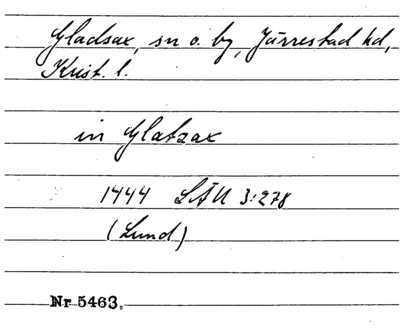 Gladsax, sn o. by, Järrestad hd,
Krist. l.
in Glatzax
1444 LÄU 3:278
(Lund)
Nr 5463.